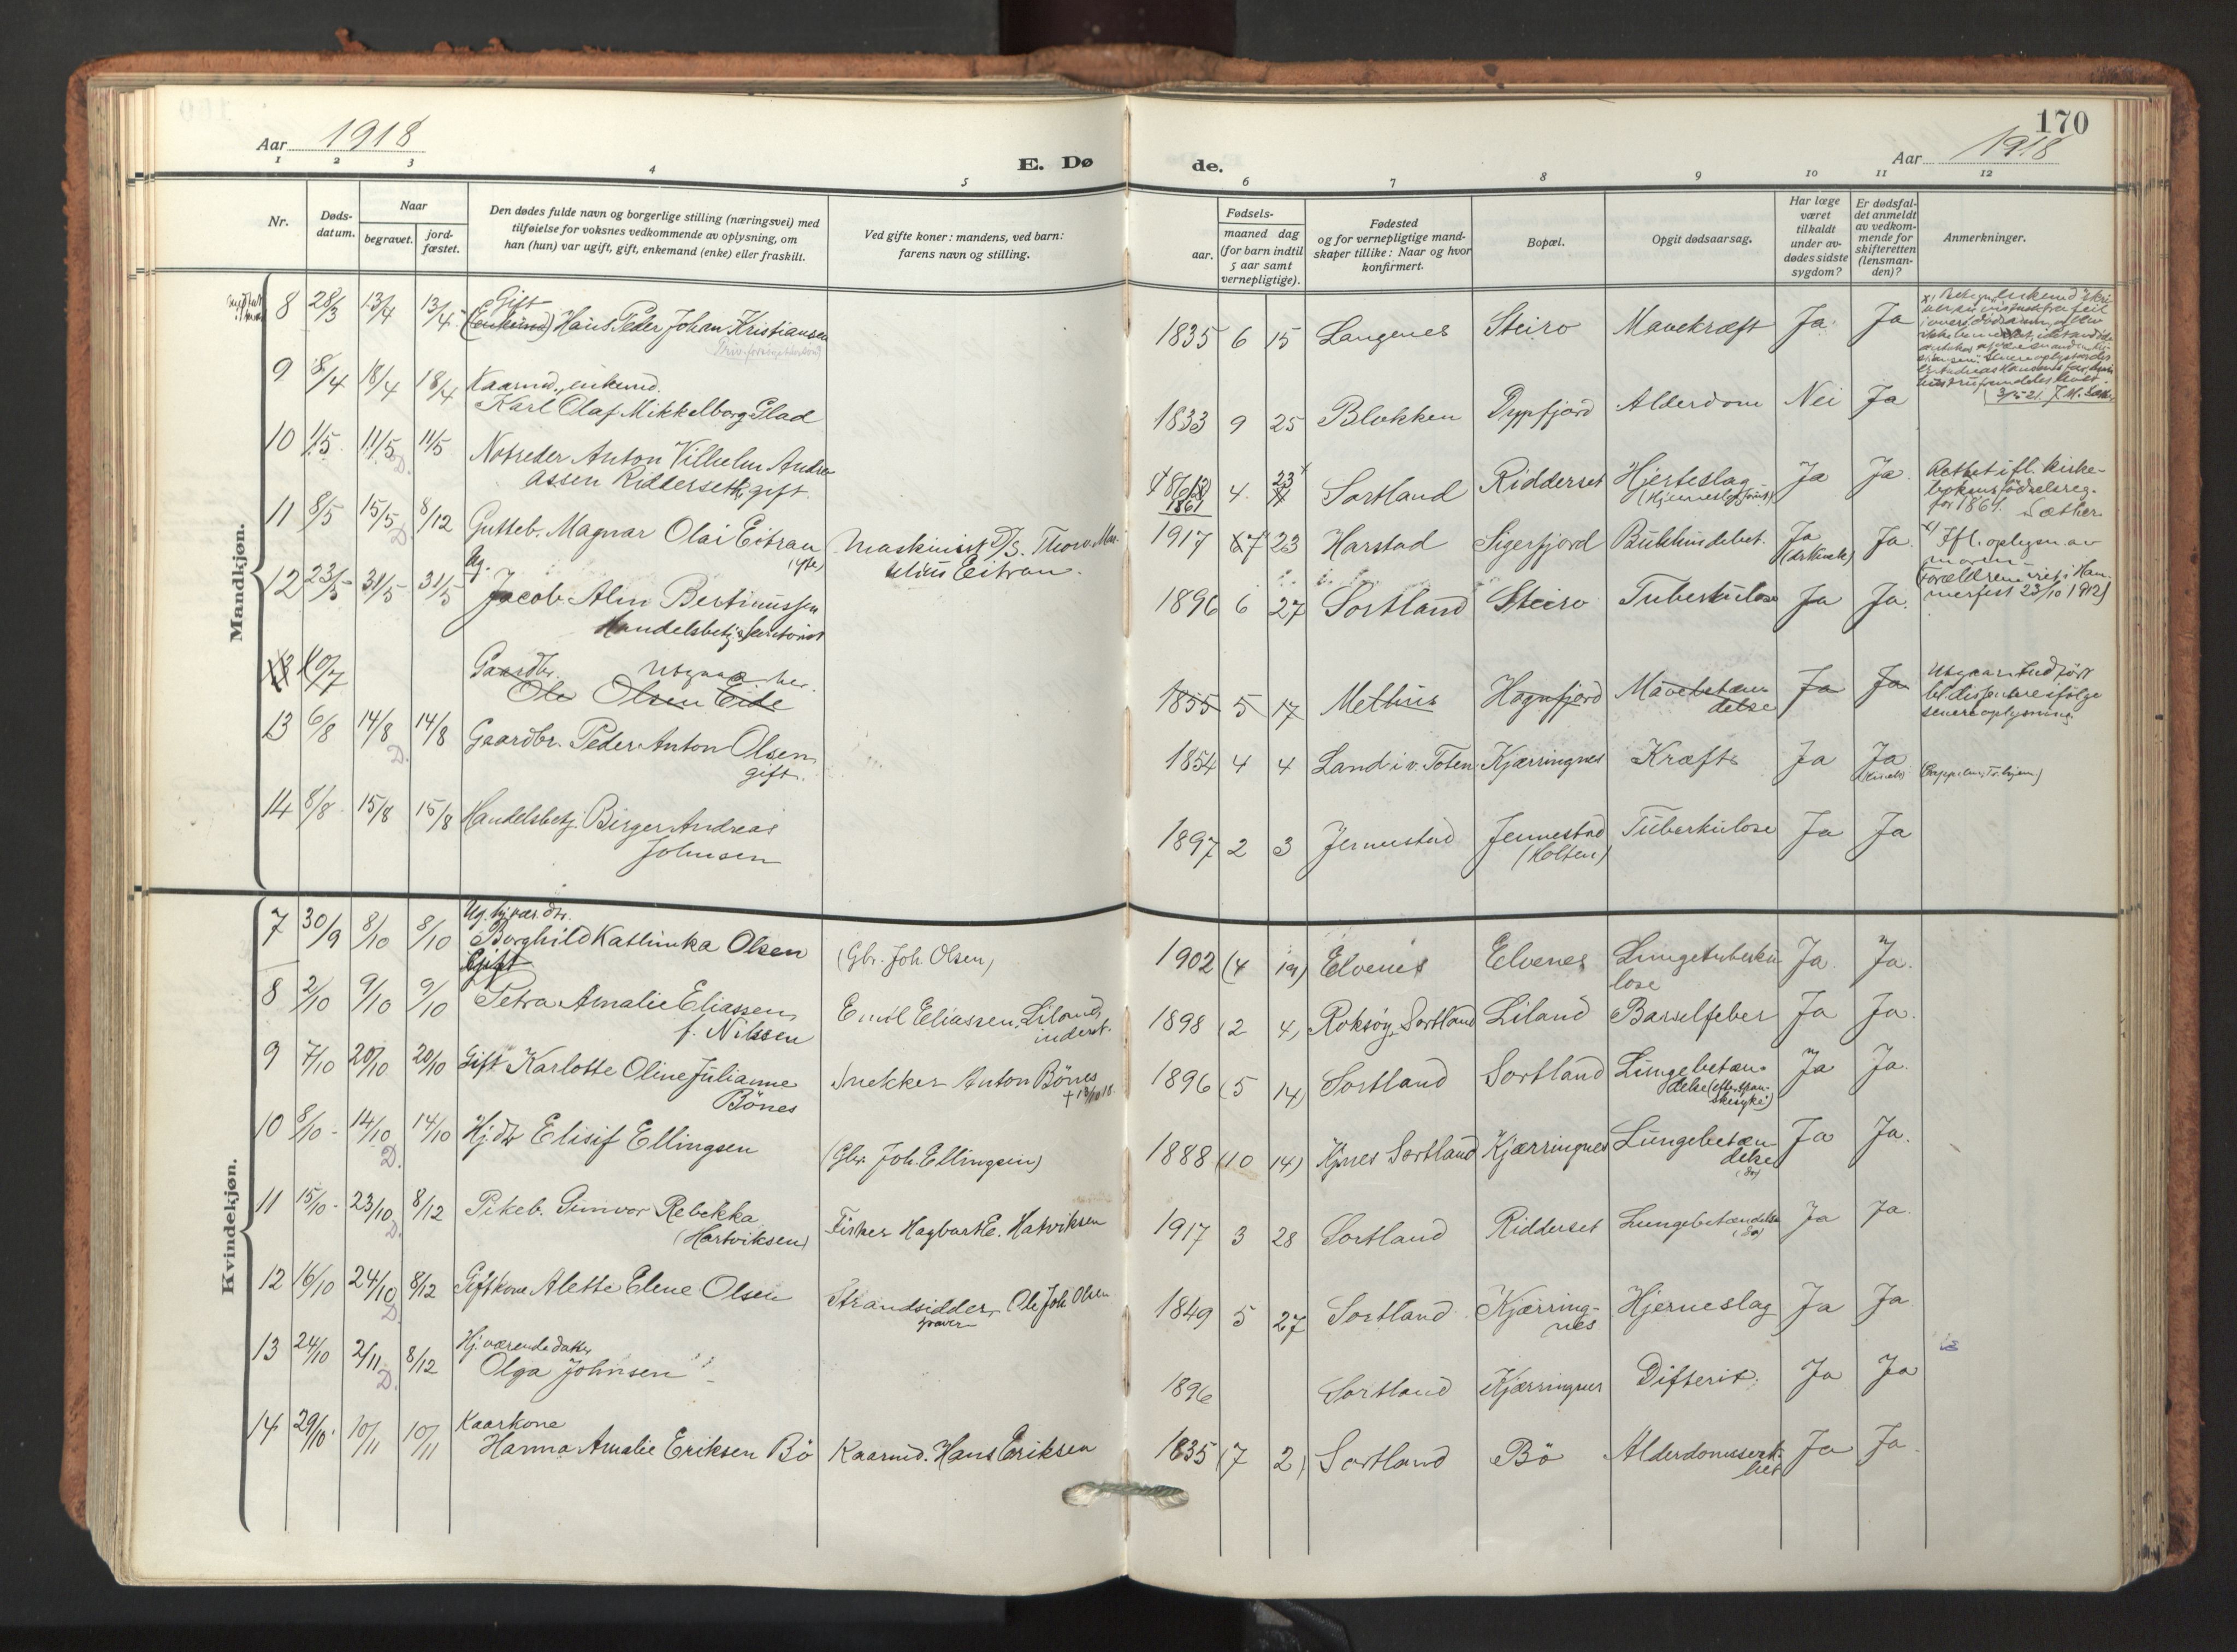 170
Aar 1918
Aar 1918
E. Dø
de.
1 2 3 4 5 6 7 8 9 10 11 12
Nr.
Døds-
datum.
Naar
begravet.
jord-
fæstet.
Den dødes fulde navn og borgerlige stilling (næringsvei) med
tilføielse for voksnes vedkommende av oplysning, om
han (hun) var ugift, gift, enkemand (enke) eller fraskilt.
Ved gifte koner: mandens, ved barn:
farens navn og stilling.
Fødsels-
aar. maaned dag
(for barn indtil
5 aar samt
vernepligtige).
Fødested
og for vernepligtige mand-
skaper tillike: Naar og hvor
konfirmert.
Bopæl.
Opgit dødsaarsag.
Har læge
været
tilkaldt
under av-
dødes sidste
sygdom?
Er dødsfal-
det anmeldt
av vedkom-
mende for
skifteretten
(lensman-
den)?
Anmerkninger.
Mandkjøn.
Gift
8 28/3 13/4 13/4 (Enkemd) Hans Peder Johan Kristiansen 1835 6 15 Langenes Steiro Mavekræft Ja Ja
9 8/4 18/4 18/4 Kaarmd., enkemd.
Karl Olaf Mikkelborg Glad 1833 9 25 Blokken Dypfjord Alderdom Nei Ja
10 1/5 11/5 11/5 Notreder Anton Vilhelm Andre
assen Ridderseth, gift.
D. 1861 4 23 Sortland Ridderset Hjerteslag Ja Ja. Rettet ifl. kirke-
bokens födselsreg.
for 1861. Sæther
11 8/5 15/5 8/12 Gutteb. Magnar Olai Eitran Maskinist D/S. Thorv. Mar
Eitran.
D. 1917 7 23 Harstad Sigerfjord Bukhindebet. Ja Ja. Ifl. oplysn. av
moren
Ug.
12 23/5 31/5 31/5 Jacob Alm Bertinussen
Handelsbetj. & kontorist
1896 6 27 Sortland Steiro Tuberkulose Ja Ja.
10/7 Gaardbr. Utgaar her.
Ole Olsen Eide 1855 5 17 Melhus Hognfjord Mavebetæn-
delse Ja Ja
13 6/8 14/8 14/8 Gaardbr. Peder Anton Olsen
gift.
D. 1854 4 4 Land i v. Toten Kjærringnes Kræft Ja Ja
14 8/8 15/8 15/8 Handelsbetj. Birger Andreas
Johnsen 1897 2 3 Jennestad Jennestad
(Holten) Tuberkulose Ja Ja
Kvindekjøn.
Ug. hj.vær. dtr.
7 30/9 8/10 8/10 Borghild Kathinka Olsen (Gbr. Joh. Olsen) 1902 (4 19) Elvenes Elvenes Lungetuberku
lose Ja Ja.
Gift
8 2/10 9/10 9/10 Petra Amalie Eliassen
f. Nilssen Emil Eliassen, Liland,
inderst. 1898 (2 4) Roksöy, Sortland Liland Barselfeber Ja Ja.
9 7/10 20/10 20/10 Gift Karlotte Oline Julianne
Bönes Snekker Anton Bönes 1896 (5 14) Sortland Sortland Lungebetæn-
delse (efter span-
skesyke) Ja Ja.
10 8/10 14/10 14/10 Hj. dtr Elisif Ellingsen (Gbr. Joh. Ellingsen)
D. 1888 (10 14) Kjnes Sortland Kjærringnes Lungebetæn-
delse
(Do) Ja Ja.
11 15/10 23/10 8/12 Pikeb. Gunvor Rebekka
(Hartviksen) Fisker Hagbart E. Hatviksen
D. 1917 3 28 Sortland Ridderset Lungebetændelse
(Do) Ja Ja.
12 16/10 24/10 8/12 Gift kone Alette Elene Olsen Strandsidder Ole Joh. Olsen
D. 1849 5 27 Sortland Kjærring-
nes Hjerneslag Ja Ja
13 24/10 2/11 8/12 Hj. værende datter
Olga Johnsen
D. 1896 Sortland Kjærringnes Difterit. Ja Ja
14 29/10 10/11 10/11 Kaarkone
Hanna Amalie Eriksen Bö Kaarmd. Hans Eriksen 1835 (7 2) Sortland Bö Alderdomssvak-
het Ja Ja.